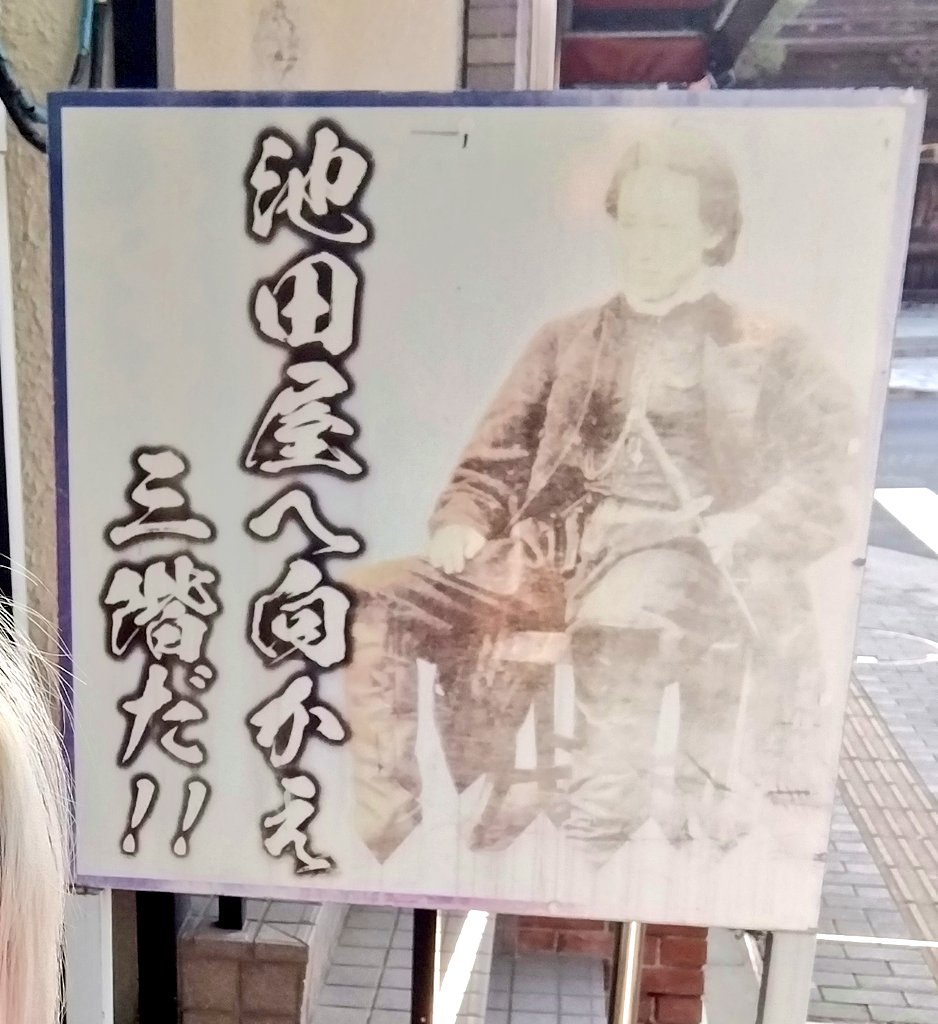 池田屋へ向かえ
三階だ!!